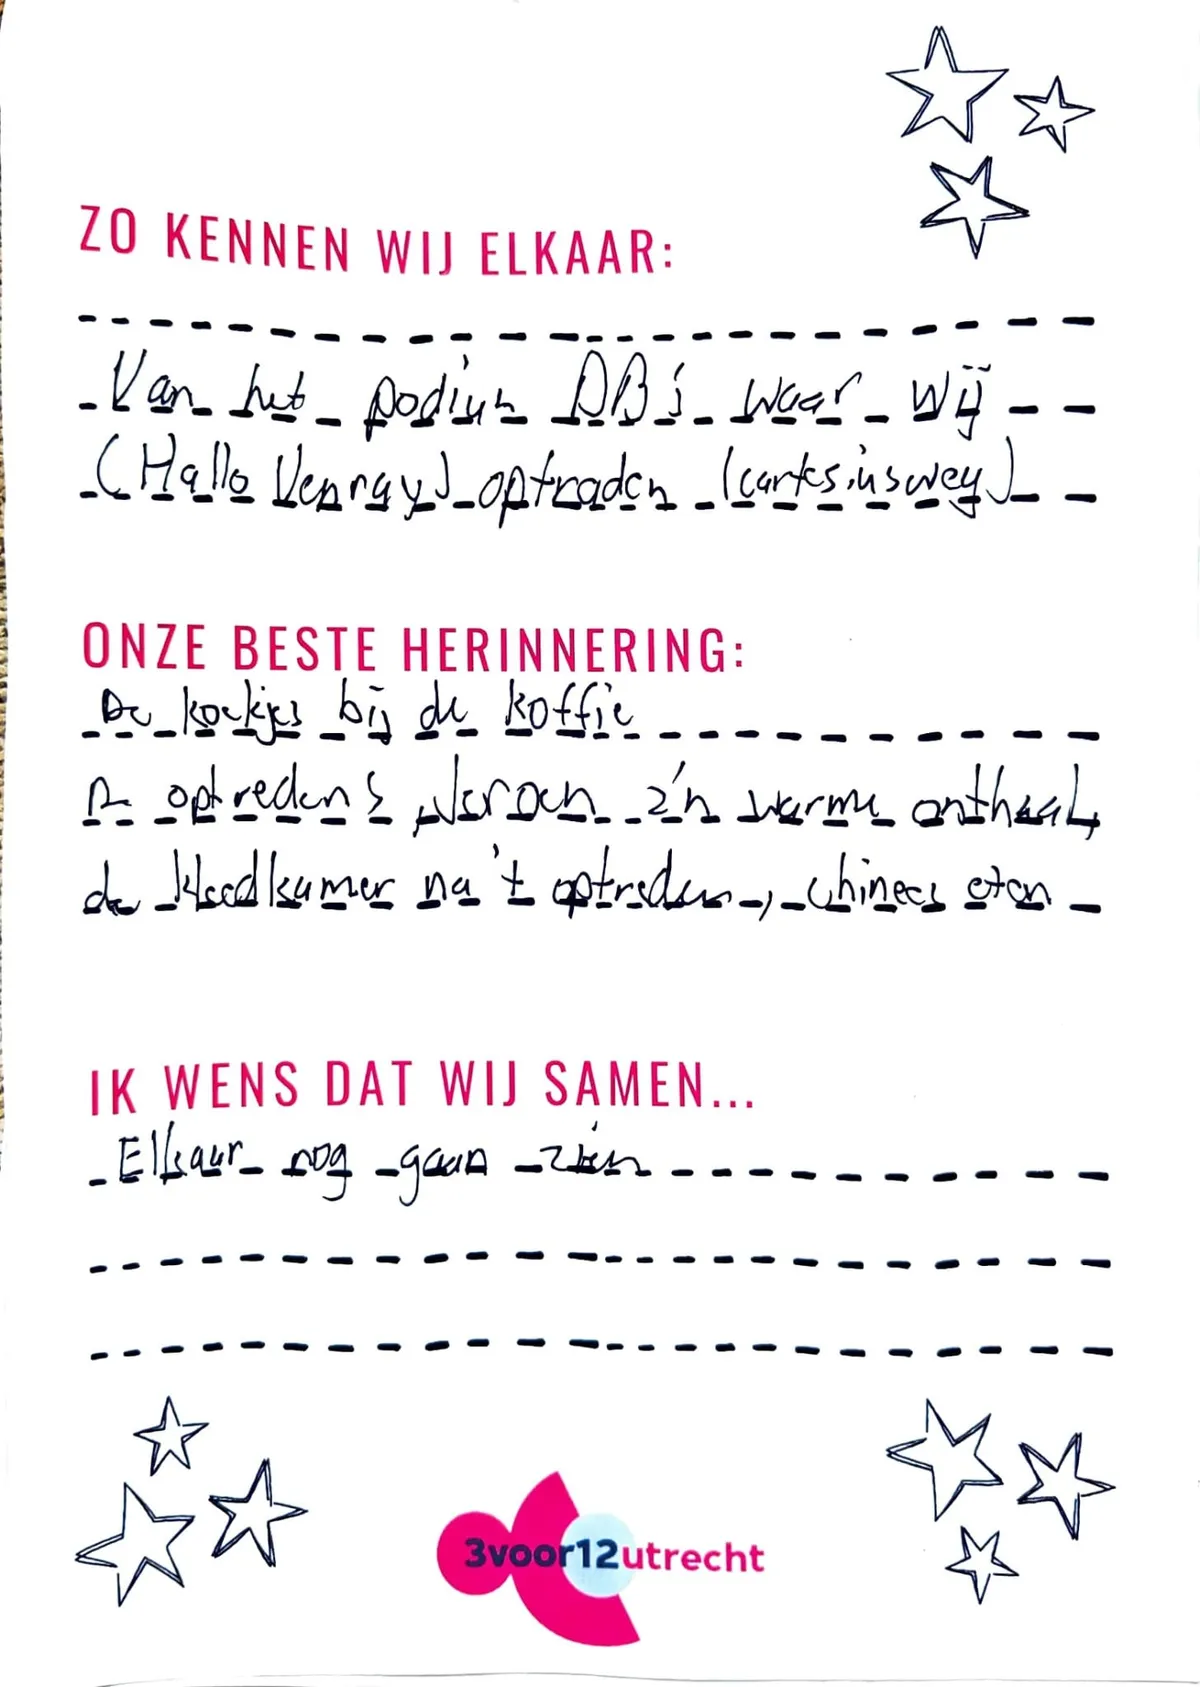 ZO KENNEN WIJ ELKAAR:
Van het podium DB's waar wij
(Hallo Venray) optraden (cartesiusweg)
ONZE BESTE HERINNERING:
De koekjes bij de koffie
De optredens, Jeroen z'n warme onthaal,
de kleedkamer na 't optreden, chinees eten
IK WENS DAT WIJ SAMEN...
Elkaar nog gaan zien
3voor12utrecht